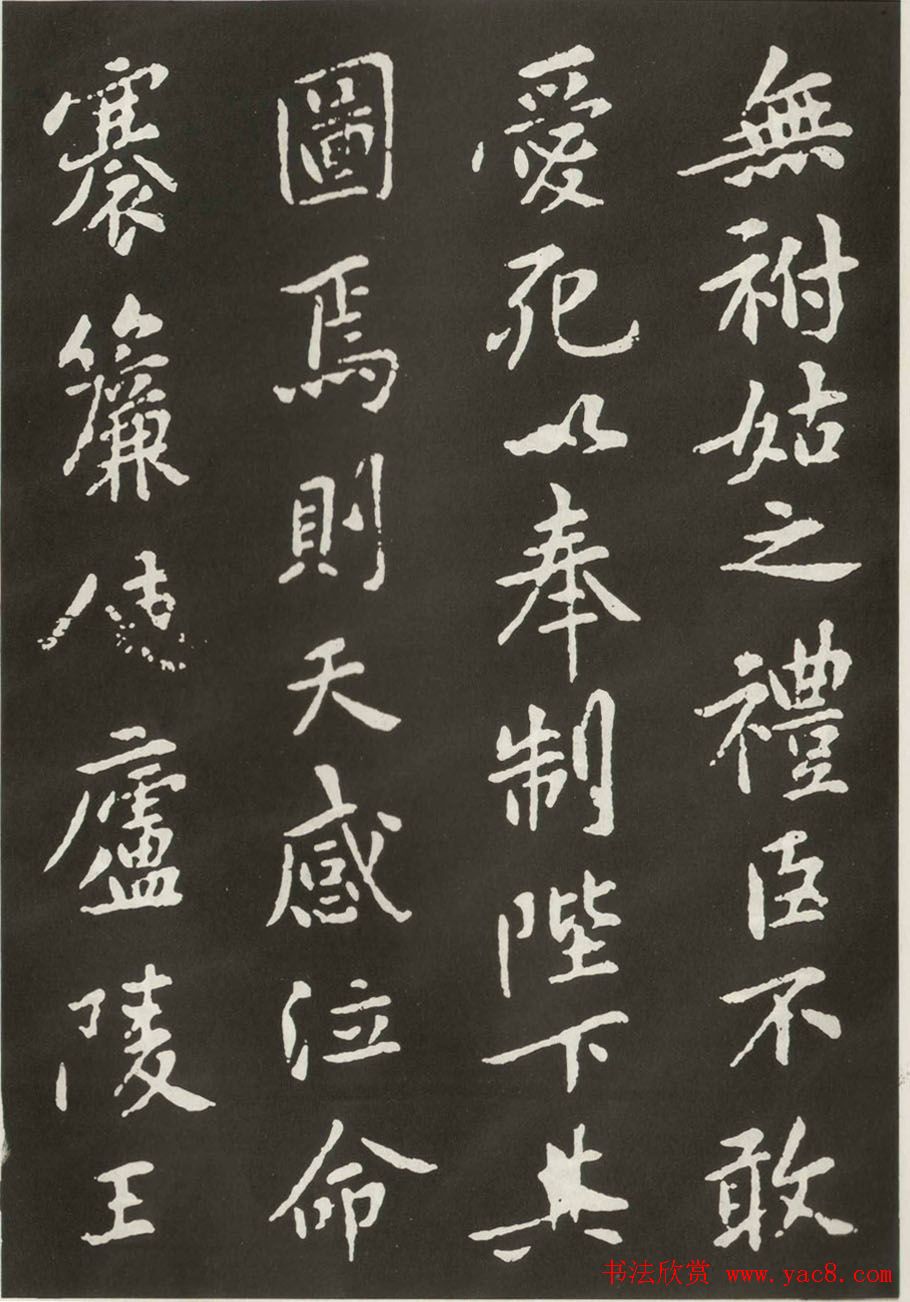 無祔姑之禮臣不敢
愛死以奉制陛下其
圖焉則天感泣命
褰簾使廬陵王
书法欣赏 www.yac8.com